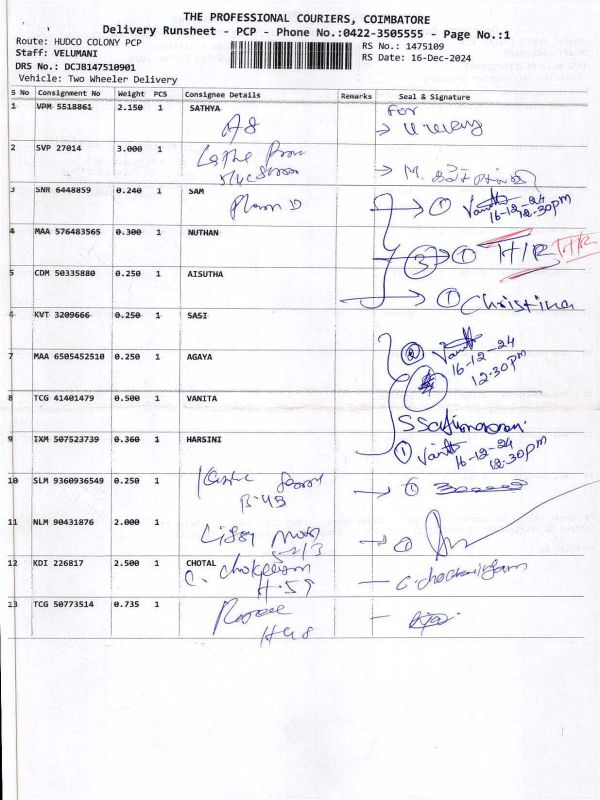 THE PROFESSIONAL COURIERS, COIMBATORE
Delivery Runsheet - PCP - Phone No.:0422-3505555 - Page No.:1
Route: HUDCO COLONY PCP
Staff: VELUMANI
DRS No.: DCJB147510901
Vehicle: Two Wheeler Delivery
RS No.: 1475109
RS Date: 16-Dec-2024
S No Consignment No Weight PCS Consignee Details Remarks Seal & Signature
1 VPM 5518861 2.150 1 SATHYA For
A8
2 SVP 27014 3.000 1
M.
3 SNR 6448859 0.240 1 SAM ① 16-12-24
12.30pm
4 MAA 576483565 0.300 1 NUTHAN ③ ① H/R H/R
5 CDM 50335880 0.250 1 AISUTHA ① Christina
6 KVT 3209666 0.250 1 SASI
7 MAA 6505452510 0.250 1 AGAYA ② 16-12-24
12.30pm
8 TCG 41401479 0.500 1 VANITA
9 IXM 507523739 0.360 1 HARSINI ① 16-12-24
12.30pm
10 SLM 9360936549 0.250 1 ①
B-43
11 NLM 90431876 2.000 1 ①
12 KDI 226817 2.500 1 CHOTAL
H-59
13 TCG 50773514 0.735 1
H48